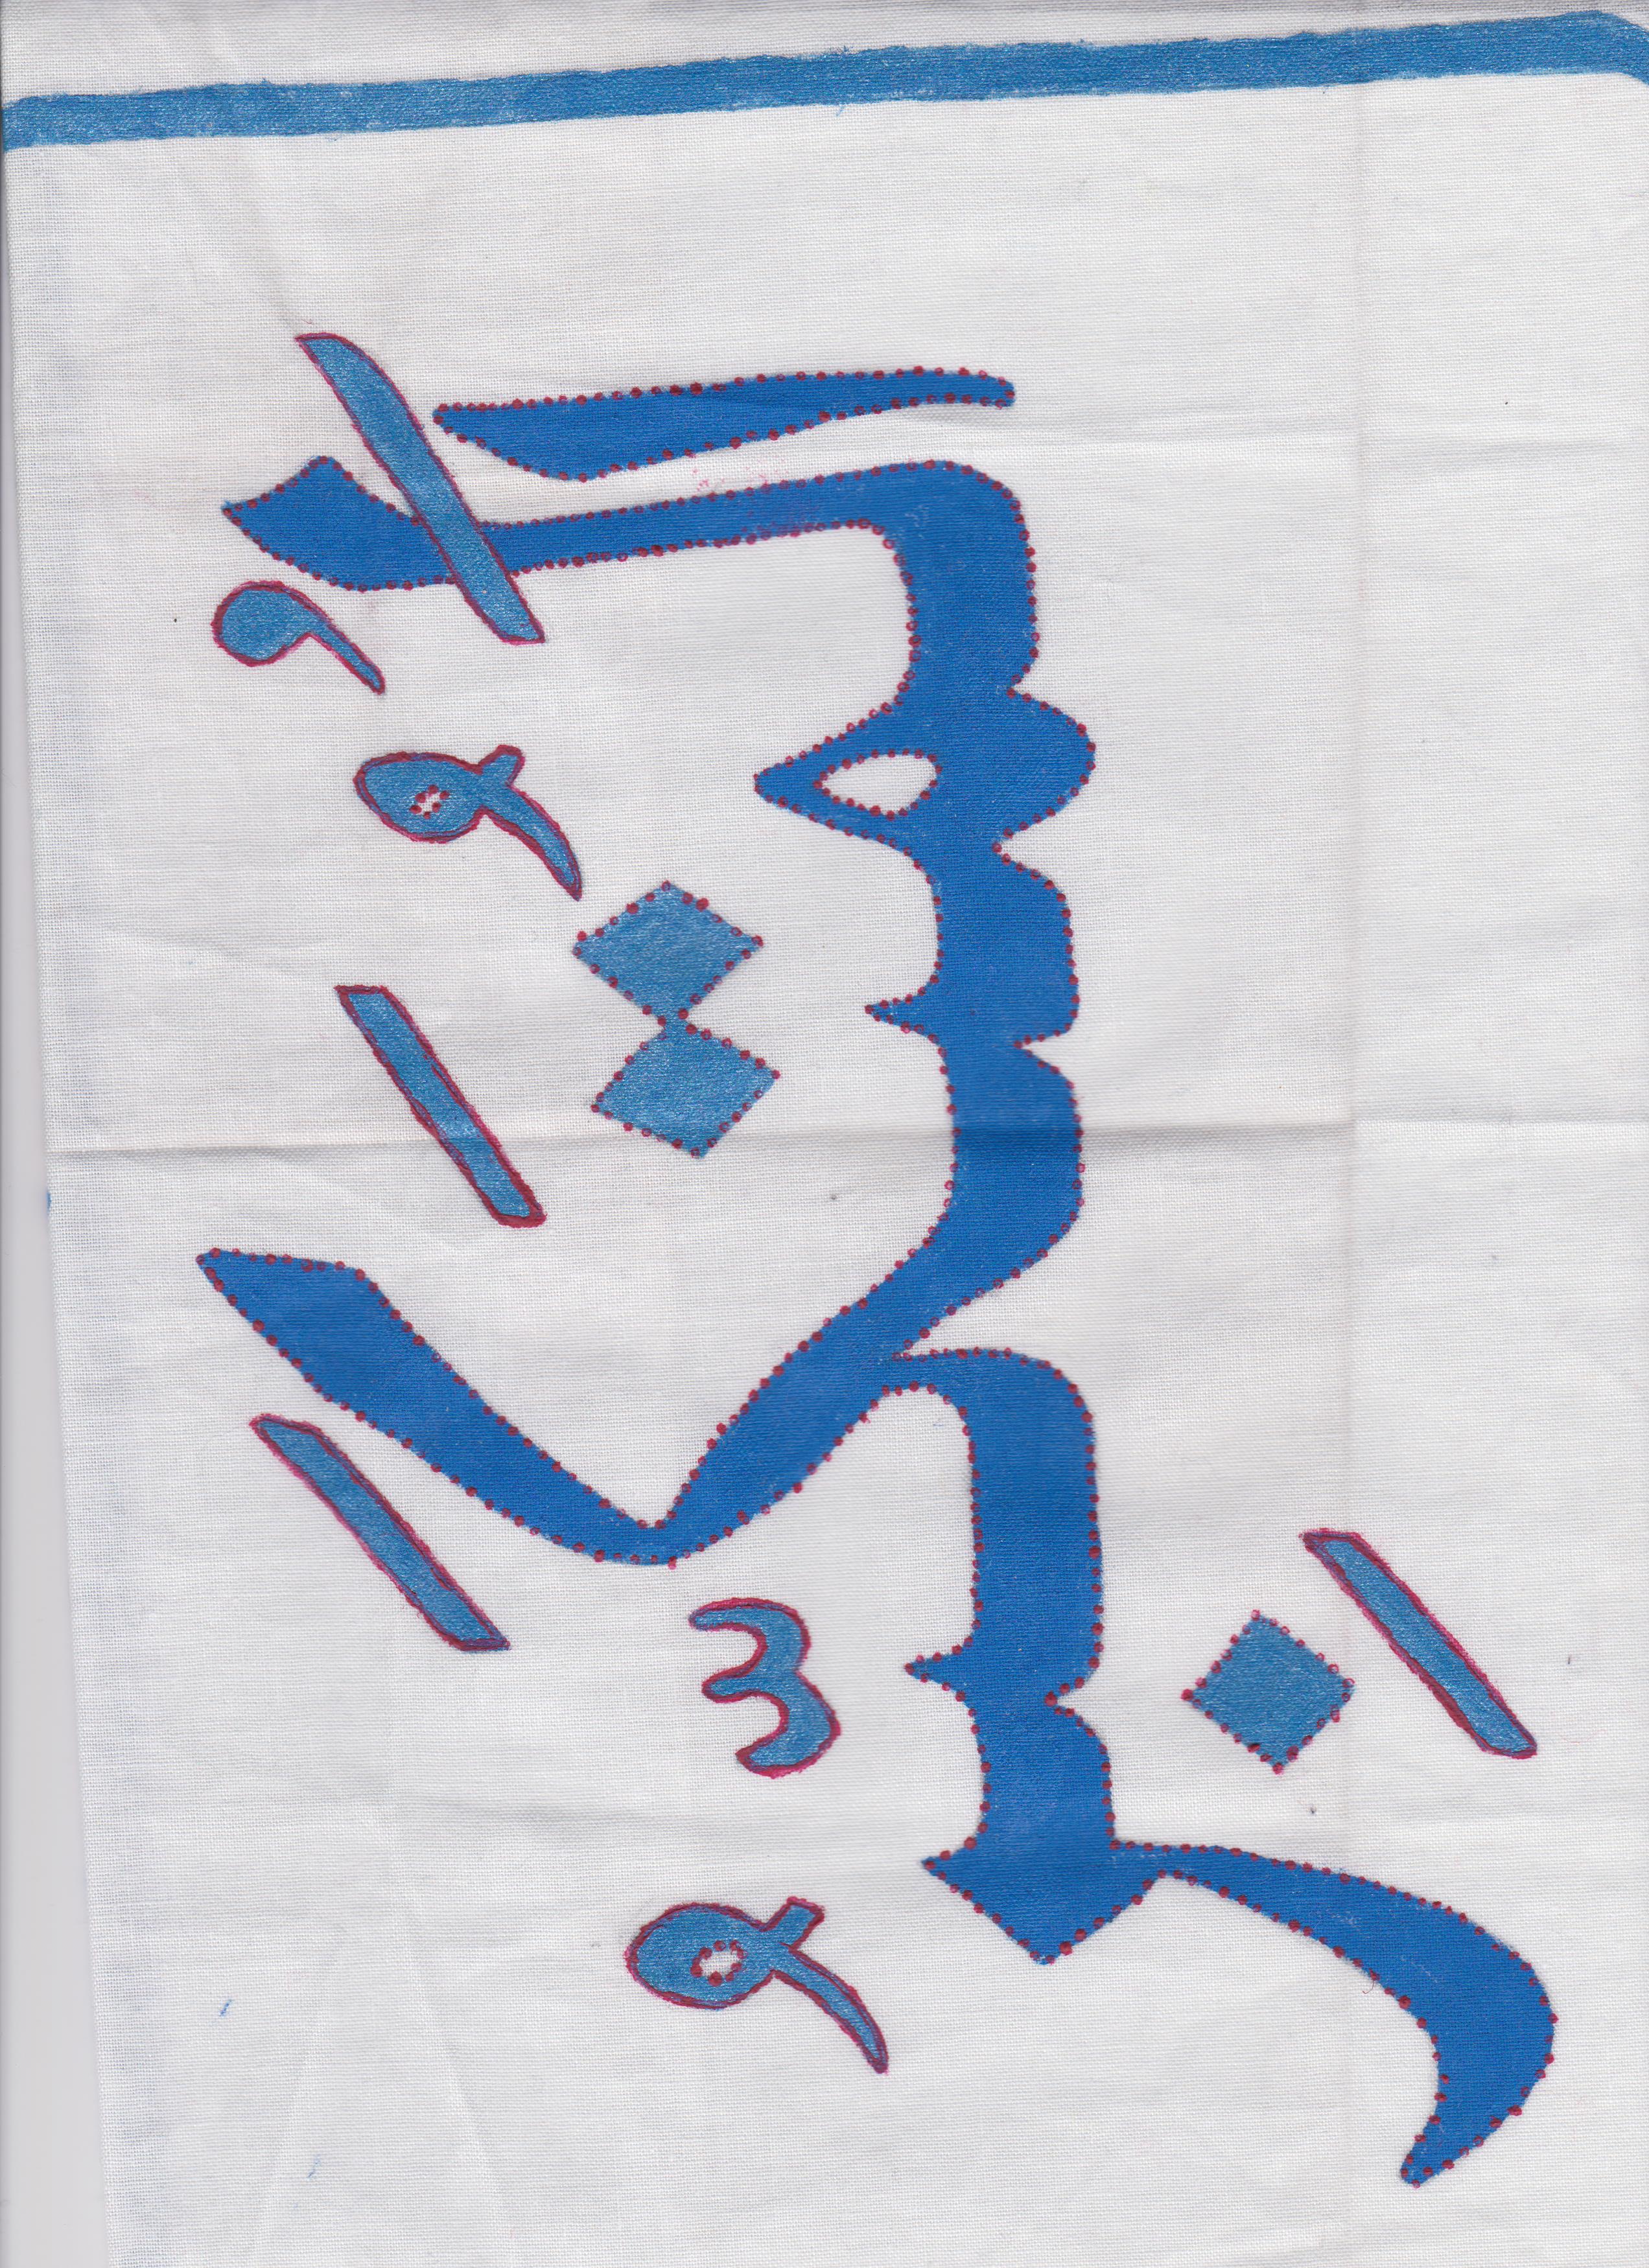 اَلْمُتَكَبِّرُ